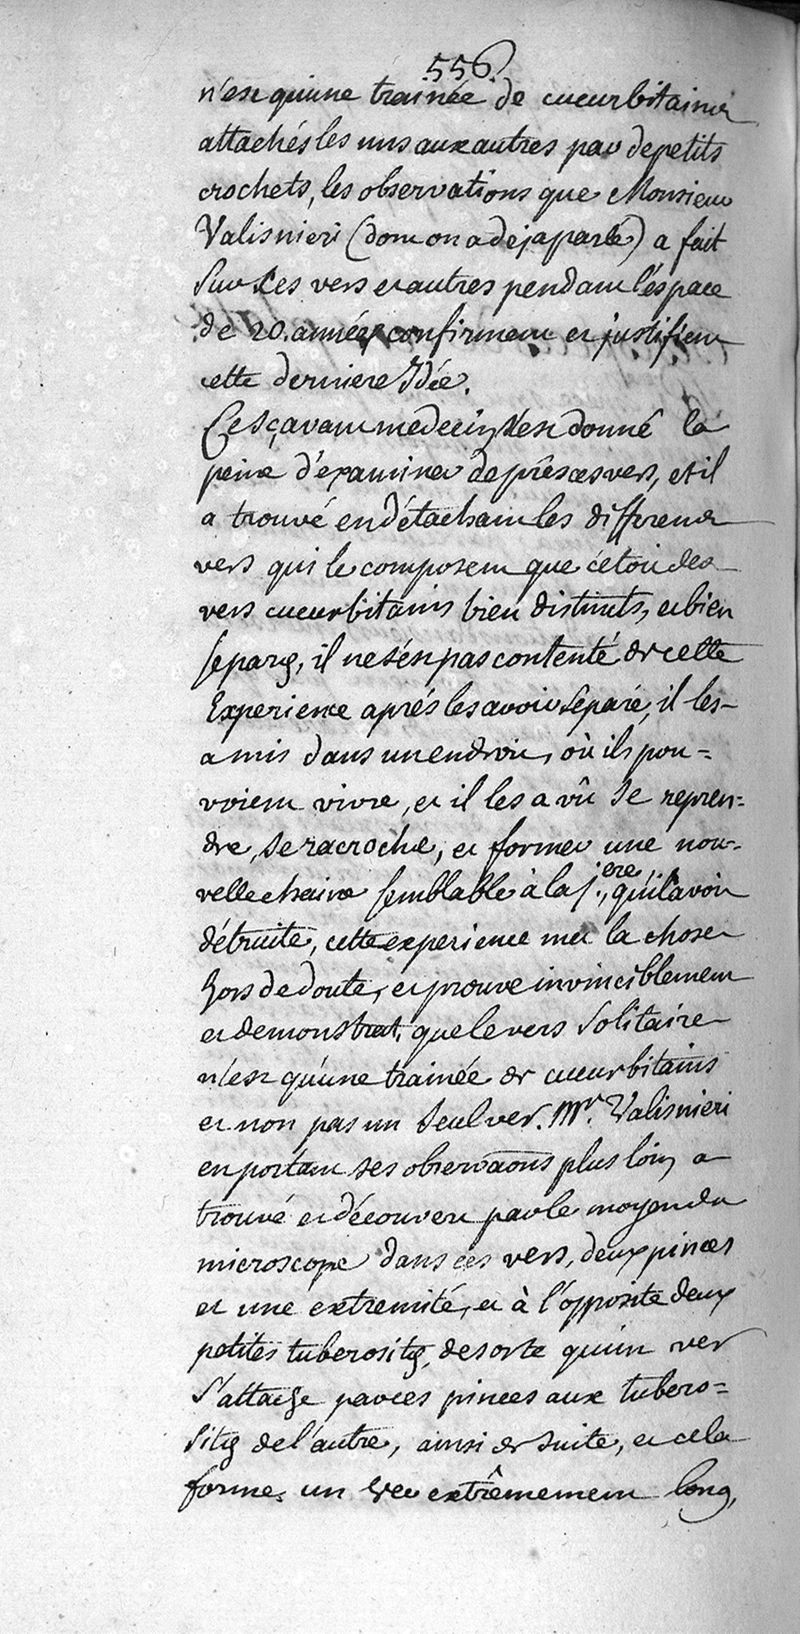 556.
n'est qu'une trainée de cucurbitains
attachés les uns aux autres par de petits
crochets, les observations que Monsieur
Valisnieri (dont on a deja parlé) a fait
sur ces vers et autres pendant l'éspace
de 20. années confirment et justifient
cette derniere Idée.
Ce sçavant medecin s'est donné la
peine d'examiner de prês ces vers, et il
a trouvé en détachant les differents
vers qui le composent que c'etoit des
vers cucurbitains bien distincts, et bien
separés, il ne s'ést pas contenté de cette
Experience aprés les avoir séparé, il les
a mis dans un endroit, où ils pou=
voient vivre, et il les a vû se repren=
dre, se racroche, et former une nou-
velle chaine semblable à la 1.ere, qu'il avoit
détruite, cette experience met la chose
hors de doute, et prouve invinciblement
et demonstrat. que le vers solitaire
n'est qu'une trainée de cucurbitains
et non pas un seul ver. Mr. Valisnieri
en portant ses observaons plus loin, a
trouvé et découvert par le moyen du
microscope dans ces vers, deux pinces
et une extremité, et à l'opposite deux
petites tuberosités, de sorte qu'un ver
s'attache par ces pinces aux tubero=
sités de l'autre, ainsi de suite, et cela
forme un ver extrêmement long,